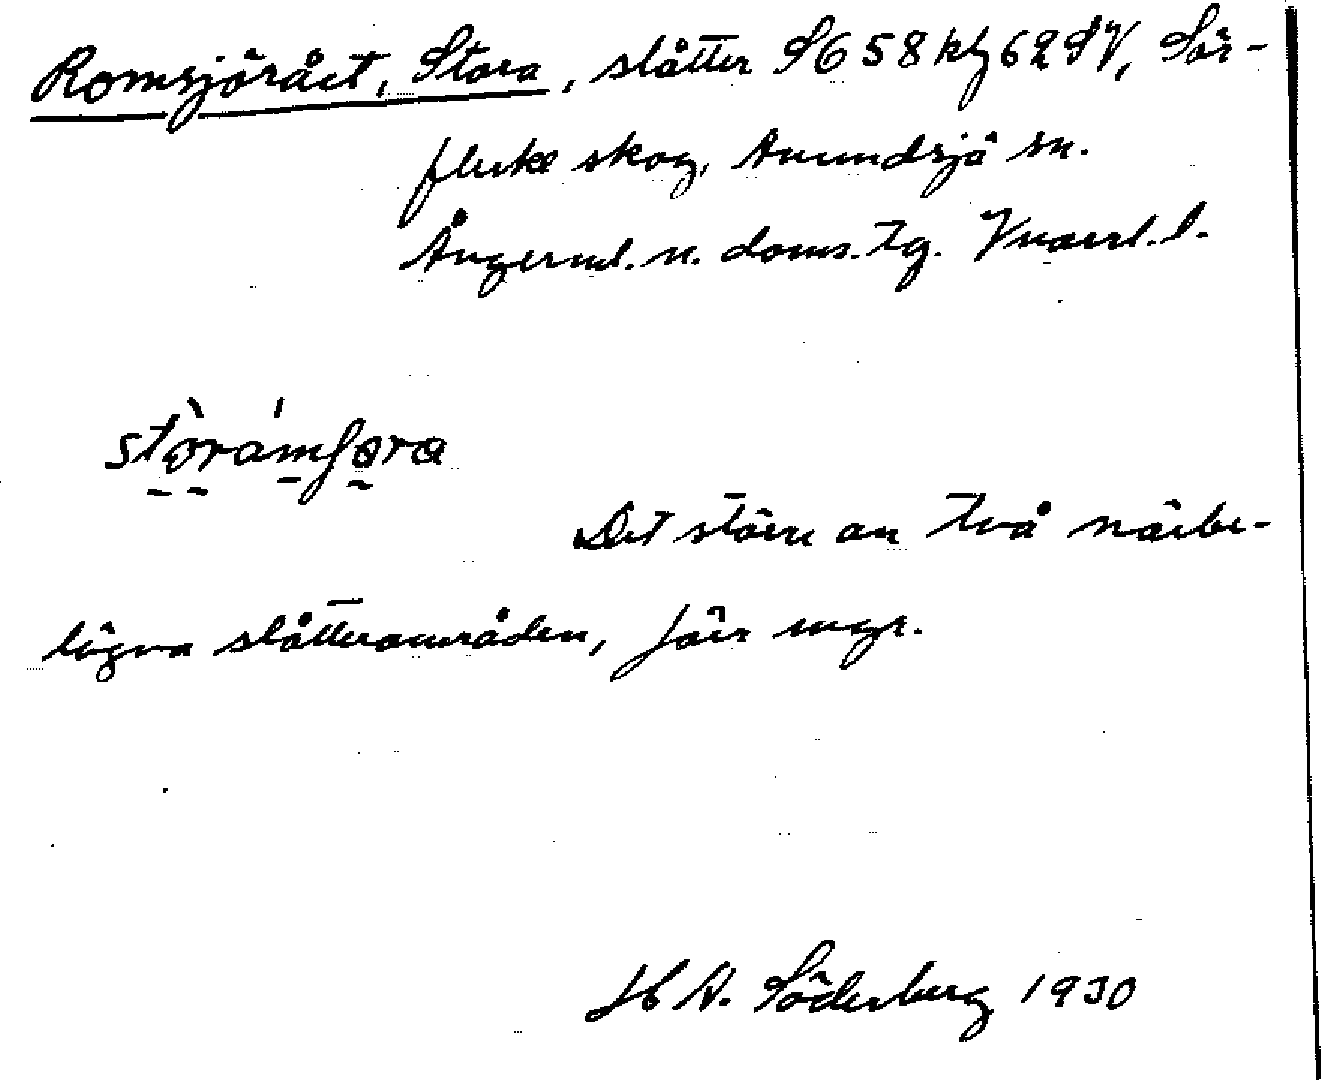 Romsjörået, Stora, slåtter S6 58 kg 62 SV, Sör-
fluke skog, Anundsjö sn.
Ångerml. n. doms. tg. Vnorrl. l.
storamsøra
Det större av två närbe-
lägna slåtterområden, förr mgr.
H A. Söderberg 1930